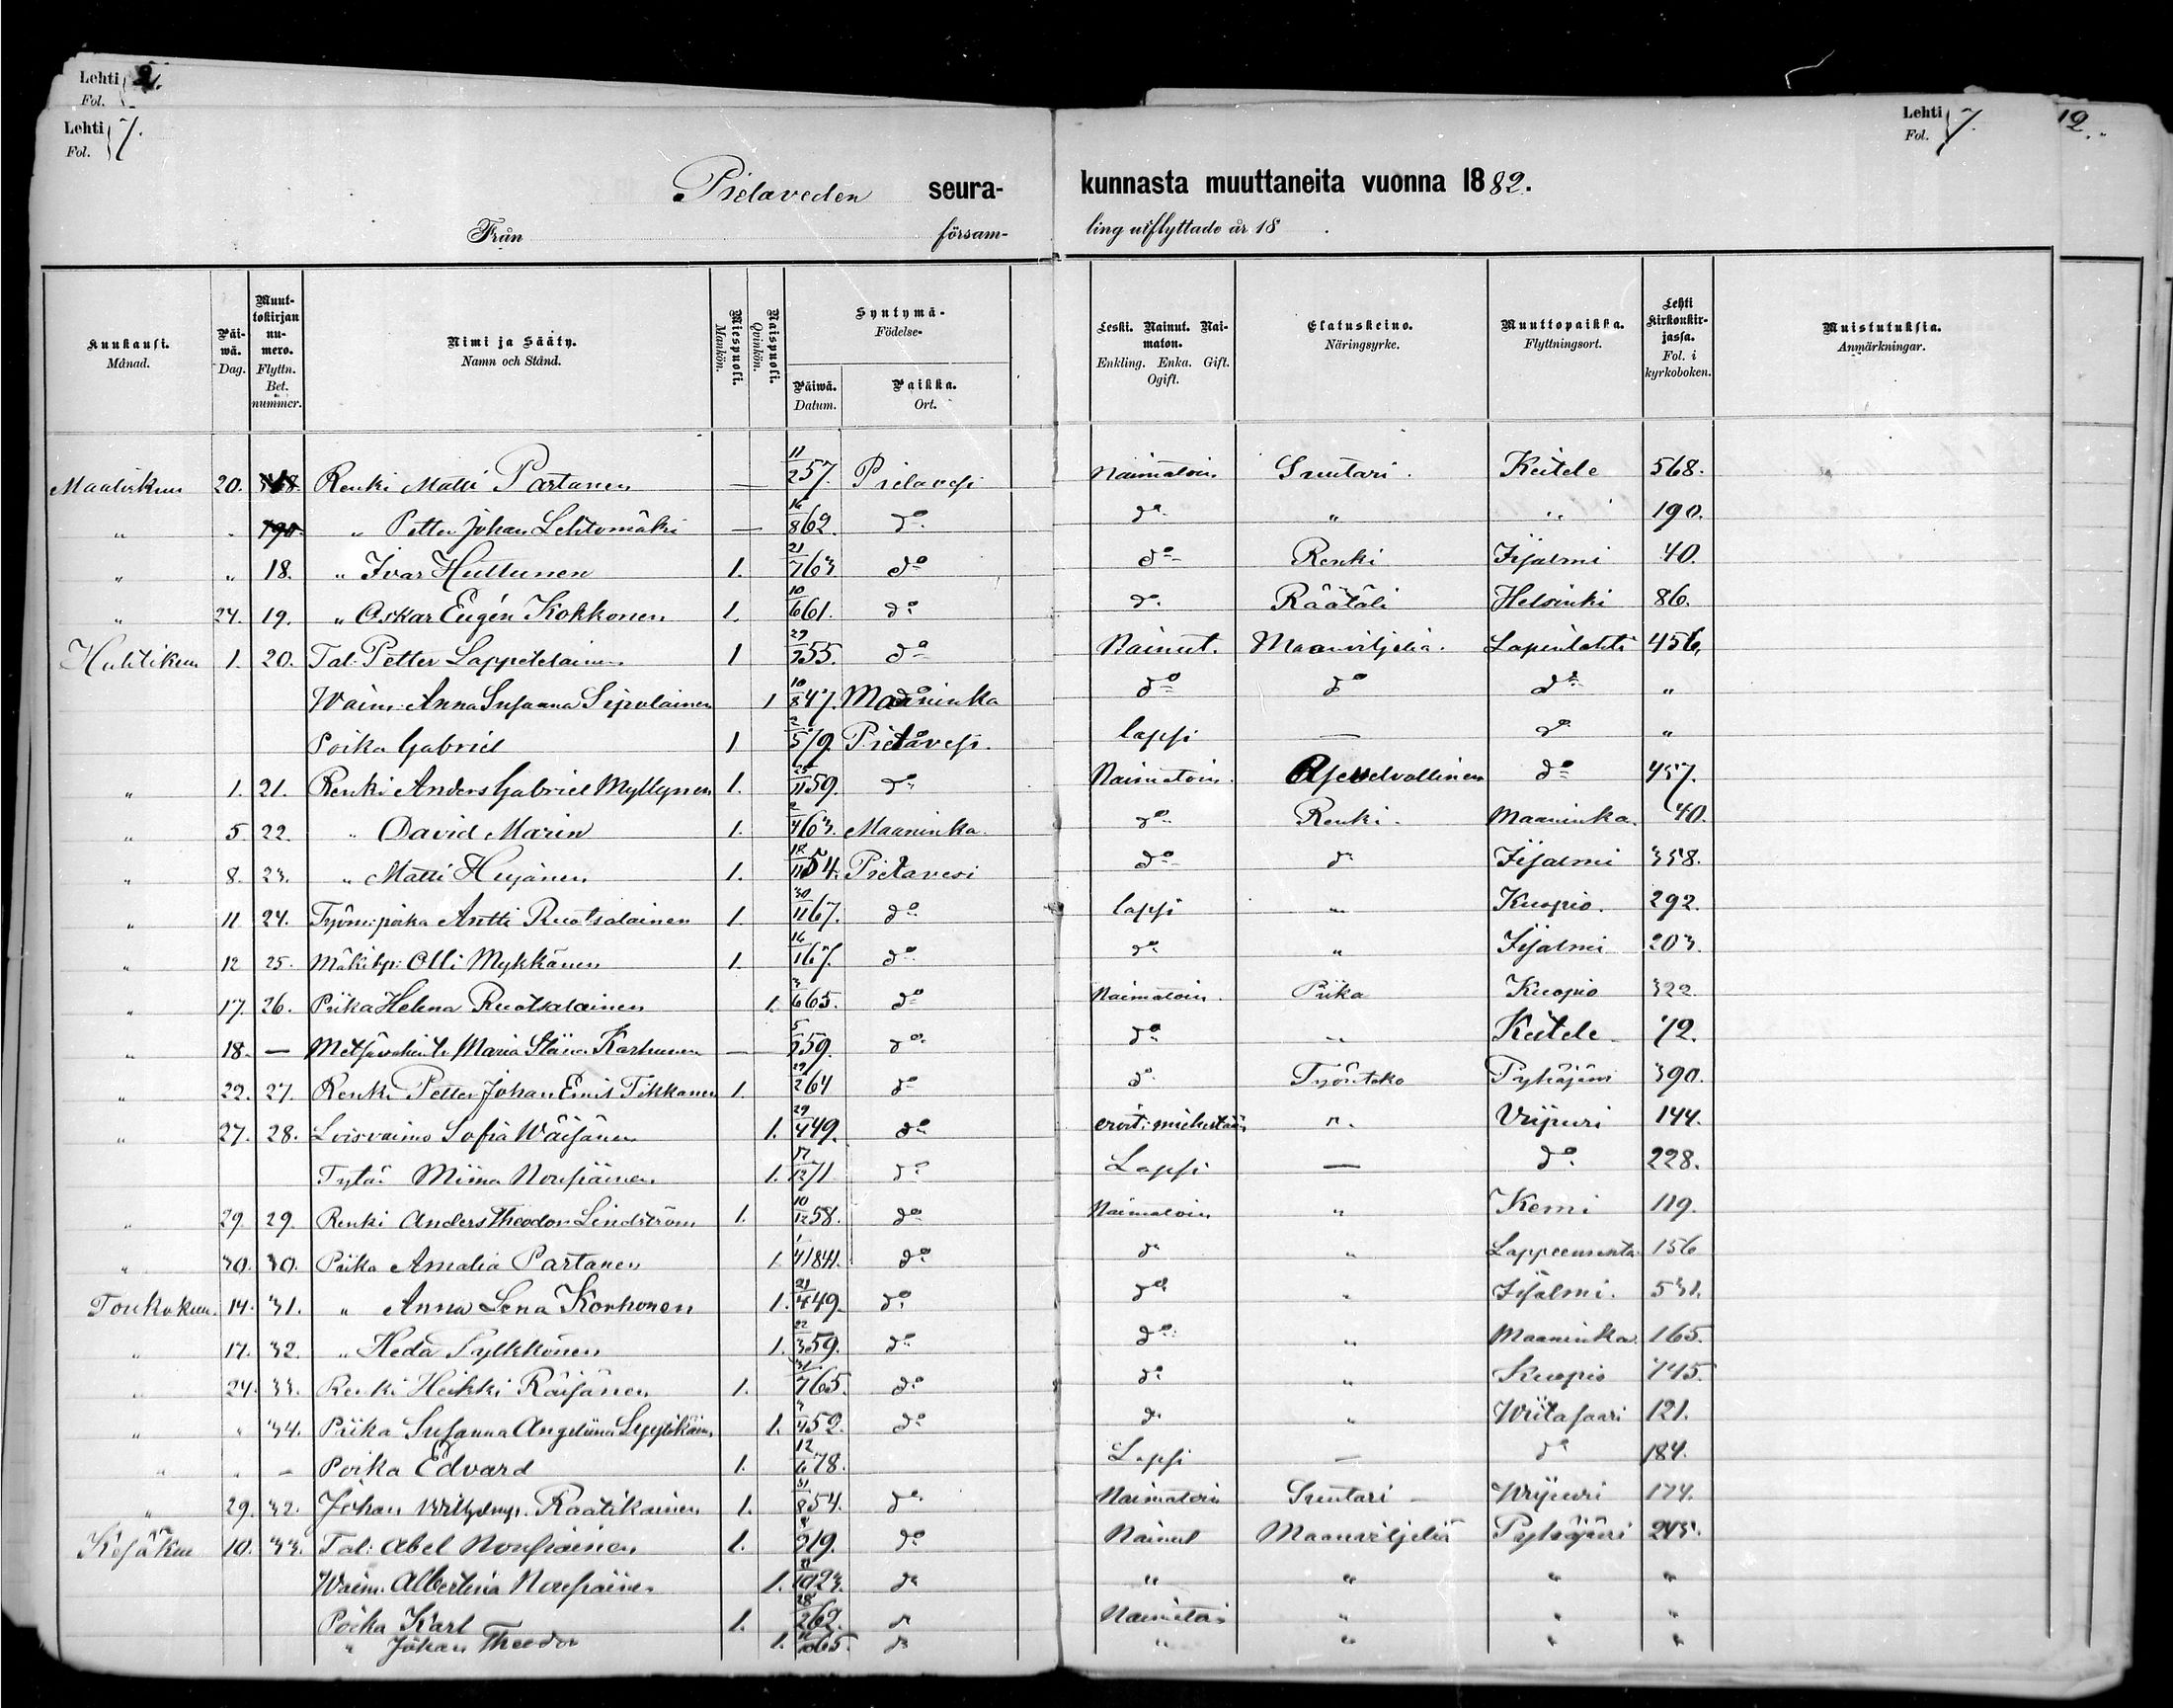 Lehti 2.
Fol.
Lehti 7.
Fol.
Lehti 7.
Fol.
12.
Pielaveden seura- kunnasta muuttaneita vuonna 1882.
Från försam- ling utflyttade år 18 .
Kuukausi. Månad.
Päi-wä. Dag.
Muut-tokirjan nu-mero. Flyttn. Bet. nummer.
Nimi ja Sääty. Namn och Stånd.
Miespuoli. Mankön.
Naispuoli. Qvinkön.
Syntymä- Födelse-
Päiwä. Datum.
Paikka. Ort.
Leski. Nainut. Nai-maton. Enkling. Enka. Gift. Ogift.
Elatuskeino. Näringsyrke.
Muuttopaikka. Flyttningsort.
Lehti Kirkonkir-jassa. Fol. i kyrkoboken.
Muistutuksia. Anmärkningar.
Maaliskuu 20. Renki Matti Partanen — 11/2 57. Pielavesi Naimatoin Suutari. Keitele 568.
" " 190. " Petter Johan Lehtomäki — 16/8 62. do do " " 190.
" " 18. " Ivar Huttunen 1. 21/7 63 do do Renki Iisalmi 40.
" 24. 19. " Oskar Eugén Kokkonen 1. 10/6 61. do do Räätäli Helsinki 86.
Huhtikuu 1. 20. Tal: Petter Lappeteläinen 1 55. do Nainut. Maanviljeliä. Lapinlahti 456.
Waim: Anna Susanna Sipolainen 1 10/8 47. Maaninka do do do "
Poika Gabriel 1 2/5 79. Pielavesi. lapsi — do "
" 1. 21. Renki Anders Gabriel Myllynen 1. 25/11 59. do Naimatoin. do 457.
" 5. 22. " David Marin 1. 2/4 63. Maaninka. do Renki. Maaninka. 40.
" 8. 23. " Matti Hujanen 1. 18/11 54. Pielavesi do do Iisalmi 358.
" 11 24. Työm: poika Antti Ruotsalainen 1. 30/11 67. do lapsi " Kuopio. 292.
" 12 25. Mäkitp: Olli Mykkänen 1. 16/1 67. do do " Iisalmi 203.
" 17. 26. Piika Helena Ruotsalainen 1. 3/6 65. do Naimatoin. Piika Kuopio 322.
" 18. — Maria Karhunen — 59. do do " Keitele 72.
" 22. 27. Renki Petter Johan Emil Tikkanen 1. 29/2 64 do do Työnteko Pyhäjärvi 390.
" 27. 28. Loisvaimo Sofia Wäisänen 1. 29/4 49. do erost: miehestään " Viipuri 144.
Tytär Miina Nousiainen 1. 17/12 71 do Lapsi — do 228.
" 29. 29. Renki Anders Theodor Lindström 1. 10/12 58. do Naimatoin " Kemi 119.
" 30. 30. Piika Amalia Partanen 1. 1/4 1841. do do " 156
Toukokuu. 14. 31. " Anna Lena Korhonen 1. 21/4 49. do do " Iisalmi. 531.
" 17. 32. " Heda Pylkkönen 1. 22/3 59. do do " Maaninka 165.
" 24. 33. Renki Heikki Räisänen 1. 31/7 65. do do " Kuopio 745.
" " 34. Piika Susanna Angeliina 1. 52. do do " Wiitasaari 121.
" " — Poika Edvard 1. 12/6 78. Lapsi — do 184.
" 29. 32. Johan Wilhelm Raatikainen 1. 31/8 54. do Naimatoin Suutari — Wiipuri 174.
Kesäkuu 10. 33. Tal: Abel Nousiainen 1. 19. do Nainut Maanviljeliä Pyhäjärvi 245.
Waim. Albertina Nousiainen 1. 23. do " " " "
Poika Karl 1. 28/2 62. do " " "
" Johan Theodor 1. 65. do " " " "